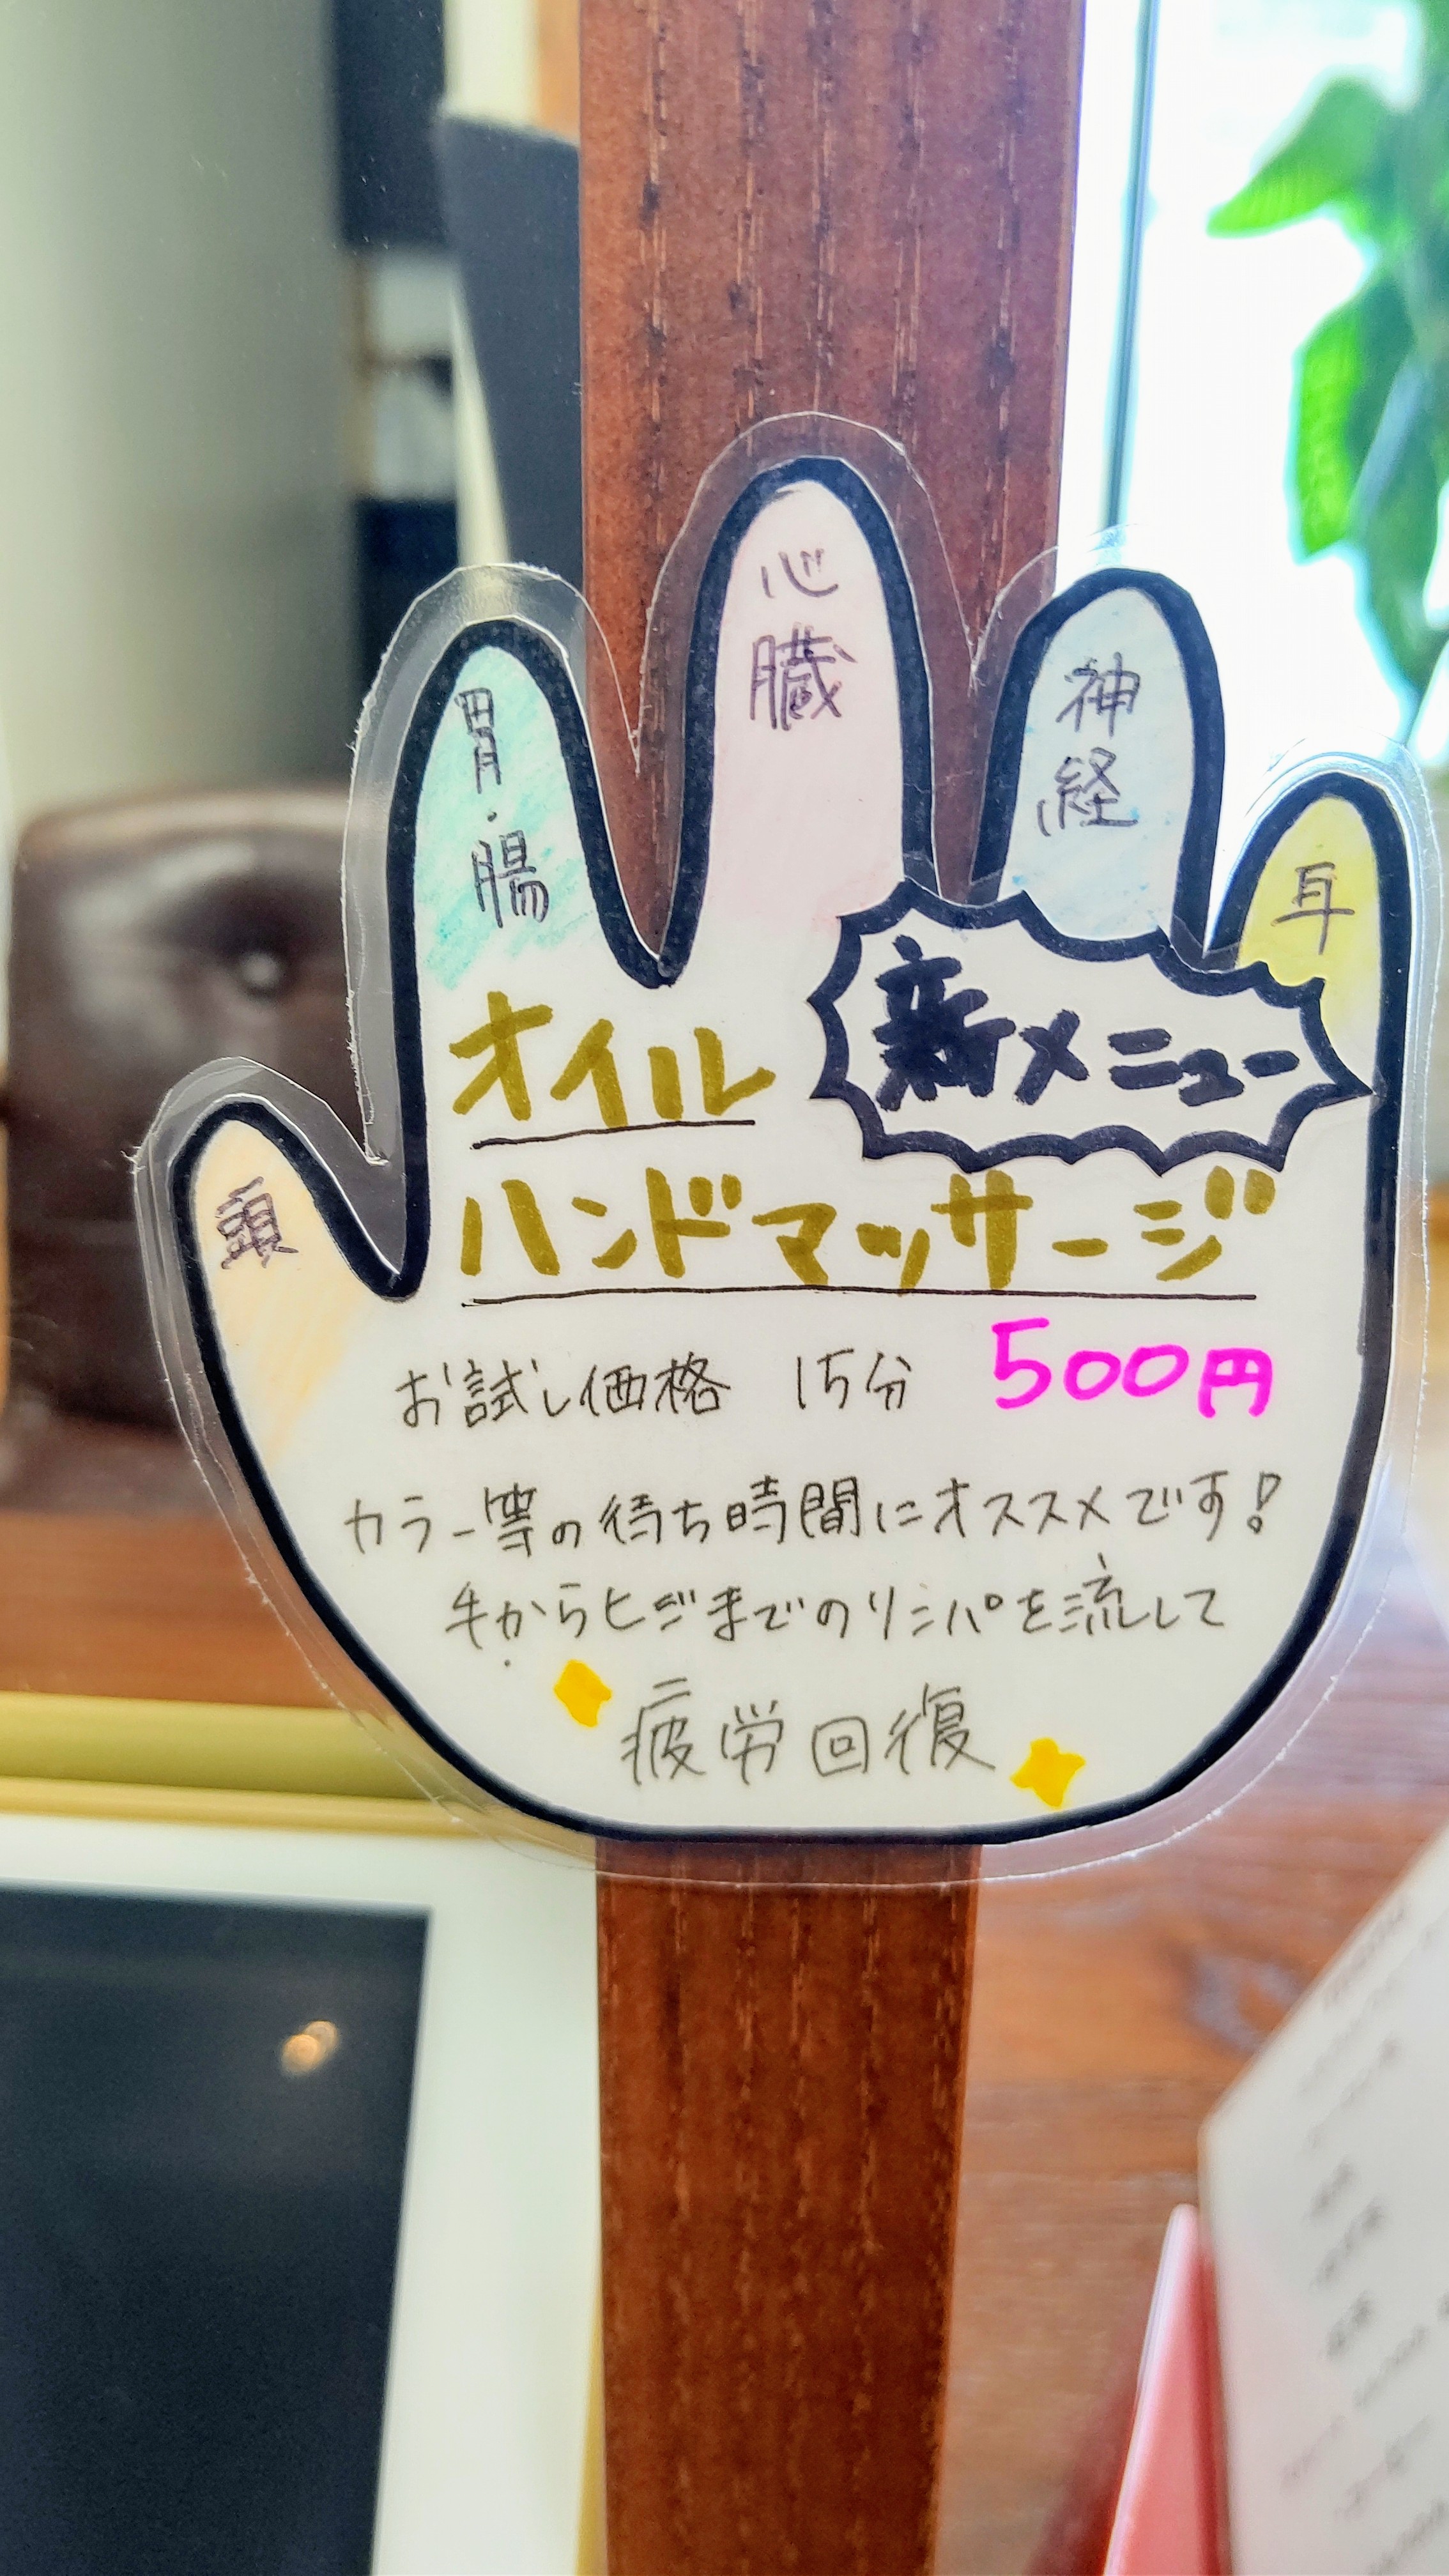 心臓
胃・腸
神経
耳
頭
新メニュー
オイル
ハンドマッサージ
お試し価格 15分 500円
カラー等の待ち時間にオススメです!
手からヒジまでのリンパを流して
疲労回復